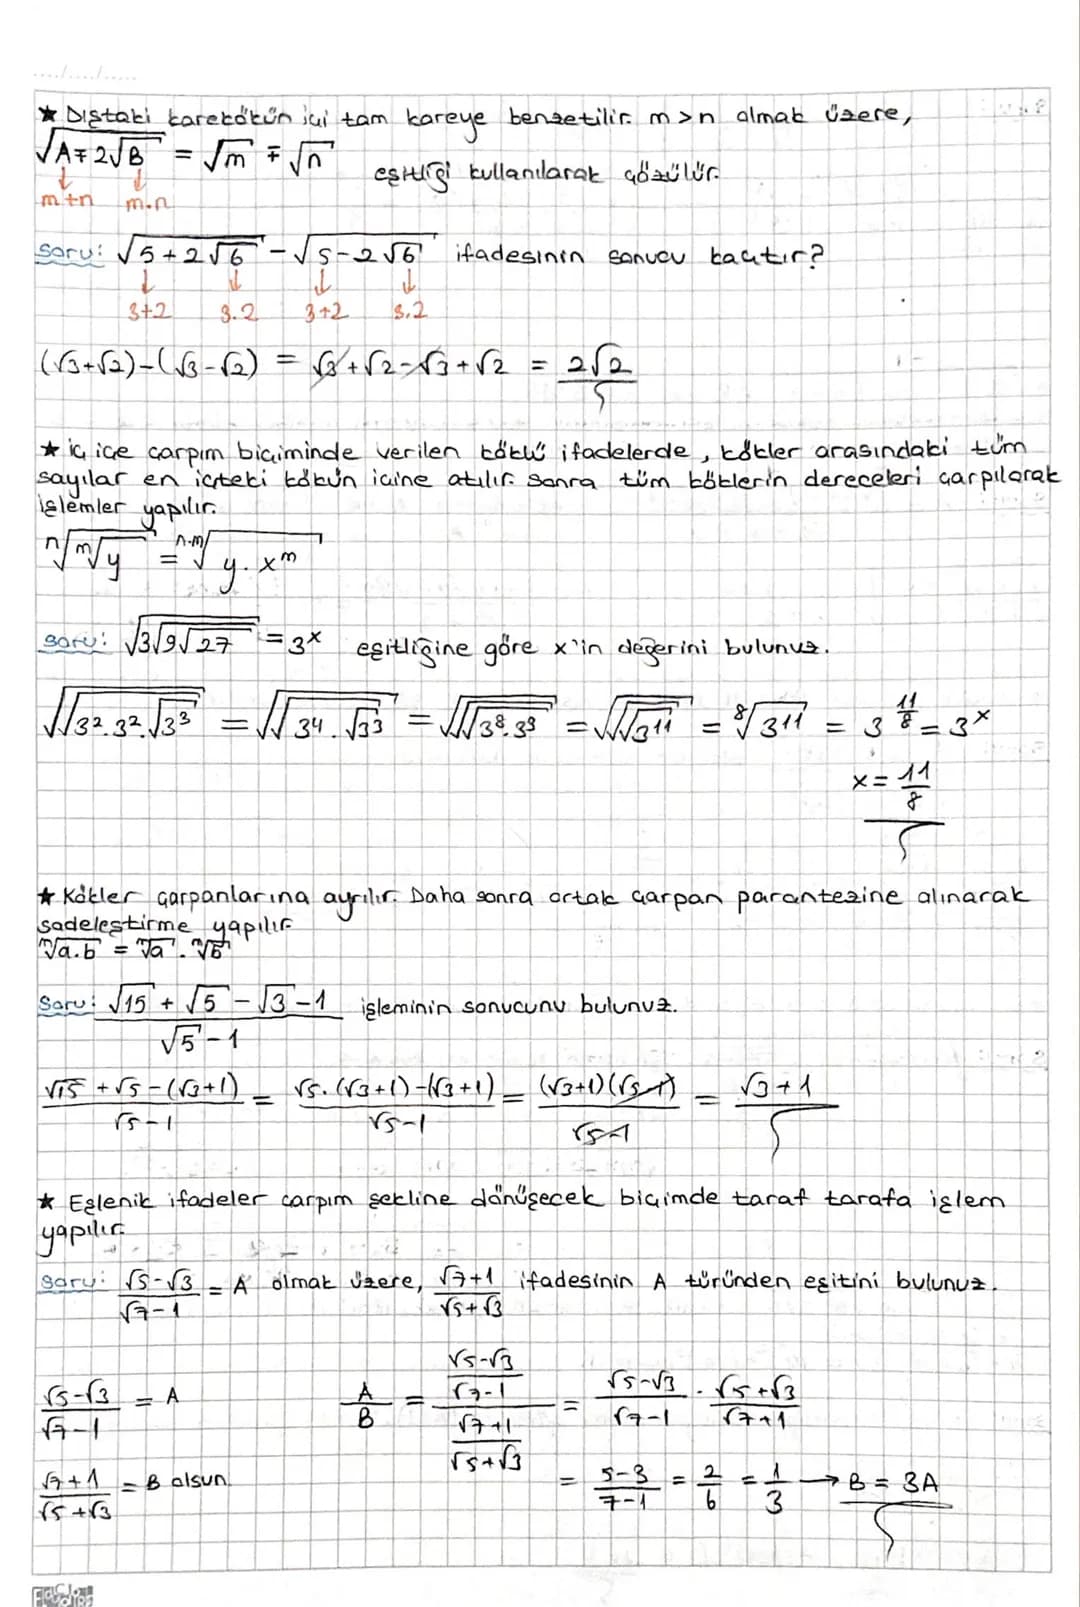 ...../...../.....
★ Dıştaki karekökün içi tam kareye benzetilir. m>n olmak üzere,
√(A∓2√B) = √m ∓ √n eşitliği kullanılarak çözülür.
↓ ↓
m+n m.n
Soru: √(5+2√6) - √(5-2√6) ifadesinin sonucu kaçtır?
↓ ↓ ↓ ↓
3+2 3.2 3+2 3.2
(√3+√2)-(√3-√2) = √3+√2-√3+√2 = 2√2
★ iç içe çarpım biçiminde verilen köklü ifadelerde, kökler arasındaki tüm
sayılar en içteki kökün içine atılır. Sonra tüm köklerin dereceleri çarpılarak
işlemler yapılır.
ⁿ√(ᵐ√y) = ⁿ·ᵐ√(y.xᵐ)
Soru: √(3√(9√27)) = 3ˣ eşitliğine göre x'in değerini bulunuz.
√(√(3².3².√3³)) = √(√(3⁴.√3³)) = √(√(√(3⁸.3³))) = √(√(√3¹¹)) = ⁸√3¹¹ = 3^(11/8) = 3ˣ
x = 11/8
★ Kökler çarpanlarına ayrılır. Daha sonra ortak çarpan parantezine alınarak
sadeleştirme yapılır.
ⁿ√(a.b) = ⁿ√a . ⁿ√b
Soru: (√15 + √5 - √3 - 1)/(√5 - 1) işleminin sonucunu bulunuz.
(√15 + √5 - (√3+1))/(√5-1) = (√5.(√3+1)-(√3+1))/(√5-1) = ((√3+1)(√5-1))/(√5-1) = √3+1
★ Eşlenik ifadeler çarpım şekline dönüşecek biçimde taraf tarafa işlem
yapılır.
Soru: (√5-√3)/(√7-1) = A olmak üzere, (√7+1)/(√5+√3) ifadesinin A türünden eşitini bulunuz.
(√5-√3)/(√7-1) = A A/B = ((√5-√3)/(√7-1))/((√7+1)/(√5+√3)) = (√5-√3)/(√7-1) . (√5+√3)/(√7+1)
(√7+1)/(√5+√3) = B olsun. = (5-3)/(7-1) = 2/6 = 1/3 → B = 3A